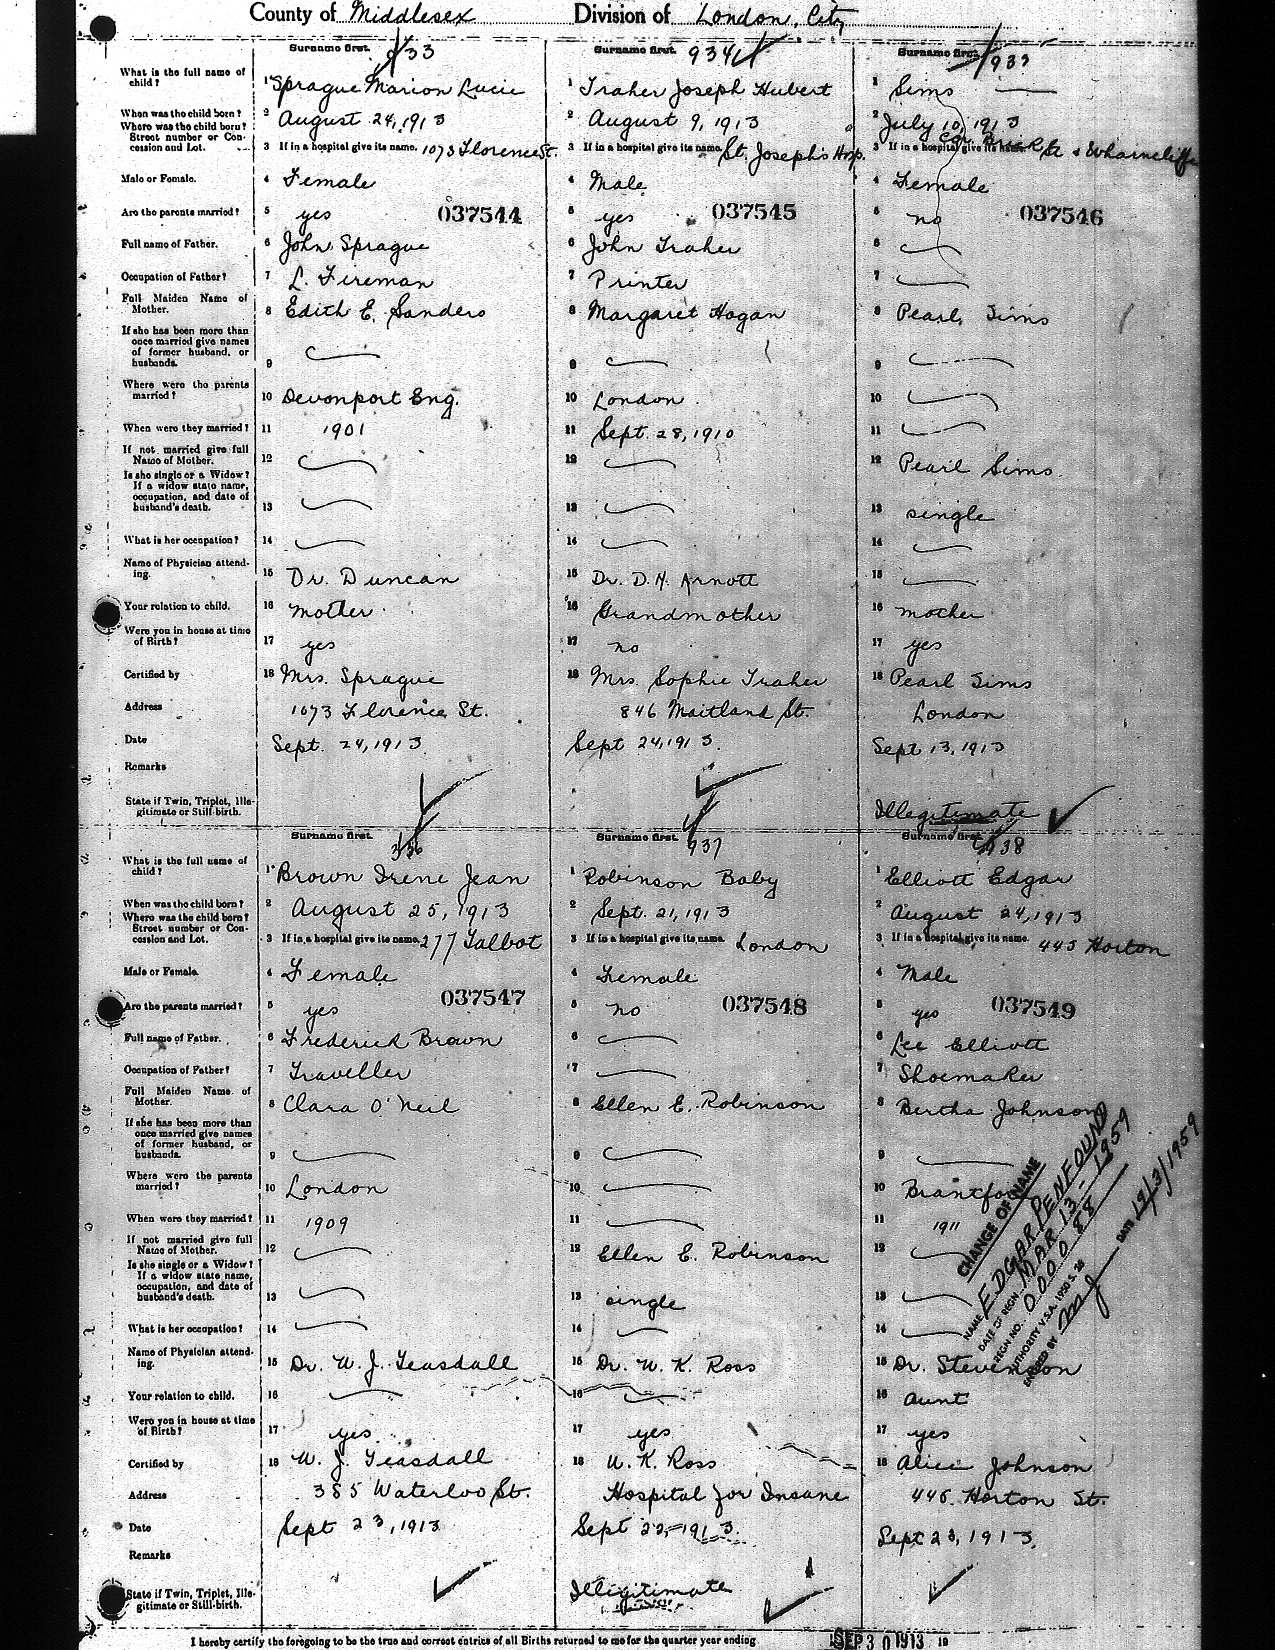 County of Middlesex Division of London, City
Surname first. 933
Surname first. 934
Surname first. 935
What is the full name of child?
1 Sprague Marion Lucie
1 Traher Joseph Hubert
1 Sims
When was the child born?
2 August 24, 1913
2 August 9, 1913
2 July 10, 1913
Where was the child born? Street number or Concession and Lot.
3 If in a hospital give its name. 1073 Florence St.
3 If in a hospital give its name. St. Joseph's Hosp.
3 If in a hospital give its name. Cor. St & Wharncliffe
Male or Female.
4 Female
4 Male
4 Female
Are the parents married?
5 yes 037544
5 yes 037545
5 no 037546
Full name of Father.
6 John Sprague
6 John Traher
6
Occupation of Father?
7 L. Fireman
7 Printer
7
Full Maiden Name of Mother.
8 Edith E. Sanders
8 Margaret Hogan
8 Pearl Sims
If she has been more than once married give names of former husband, or husbands.
9
9
9
Where were the parents married?
10 Devonport Eng.
10 London
10
When were they married?
11 1901
11 Sept. 28, 1910
11
If not married give full Name of Mother.
12
12
12 Pearl Sims
Is she single or a Widow? If a widow state name, occupation, and date of husband's death.
13
13
13 single
What is her occupation?
14
14
14
Name of Physician attending.
15 Dr. Duncan
15 Dr. D. H. Arnott
15
Your relation to child.
16 mother
16 Grandmother
16 mother
Were you in house at time of Birth?
17 yes
17 no
17 yes
Certified by
18 Mrs. Sprague
18 Mrs. Sophie Traher
18 Pearl Sims
Address
1073 Florence St.
846 Maitland St.
London
Date
Sept. 24, 1913
Sept 24, 1913.
Sept 13, 1913
Remarks
State if Twin, Triplet, Illegitimate or Still-birth.
Illegitimate
Surname first. 936
Surname first. 937
Surname first. 938
What is the full name of child?
1 Brown Irene Jean
1 Robinson Baby
1 Elliott Edgar
When was the child born?
2 August 25, 1913
2 Sept. 21, 1913
2 August 24, 1913
Where was the child born? Street number or Concession and Lot.
3 If in a hospital give its name. 277 Talbot
3 If in a hospital give its name. London
3 If in a hospital give its name. 445 Horton
Male or Female.
4 Female
4 Female
4 Male
Are the parents married?
5 yes 037547
5 no 037548
5 yes 037549
Full name of Father.
6 Frederick Brown
6
6 Lee Elliott
Occupation of Father?
7 Traveller
7
7 Shoemaker
Full Maiden Name of Mother.
8 Clara O'Neil
8 Ellen E. Robinson
8 Bertha Johnson
If she has been more than once married give names of former husband, or husbands.
9
9
9
Where were the parents married?
10 London
10
10 Brantford
When were they married?
11 1909
11
11 1911
If not married give full Name of Mother.
12
12 Ellen E. Robinson
12
Is she single or a Widow? If a widow state name, occupation, and date of husband's death.
13
13 single
13
What is her occupation?
14
14
14
CHANGE OF NAME
NAME EDGAR PENFOUND
DATE OF REGN. MAR. 13-1959
REGN NO. 000088
AUTHORITY V.S.A. 1950 S. 28
ENTERED BY DATE 19/3/1959
Name of Physician attending.
15 Dr. W. J. Teasdall
15 Dr. W. K. Ross
15 Dr. Stevenson
Your relation to child.
16
16
16 Aunt
Were you in house at time of Birth?
17 yes
17 yes
17 yes
Certified by
18 W. J. Teasdall
18 W. K. Ross
18 Alice Johnson
Address
385 Waterloo St.
Hospital for Insane
445 Horton St.
Date
Sept 23, 1913
Sept 22, 1913.
Sept 23, 1913.
Remarks
State if Twin, Triplet, Illegitimate or Still-birth.
Illigitimate
I hereby certify the foregoing to be the true and correct entries of all Births returned to me for the quarter year ending SEP 30 1913 19